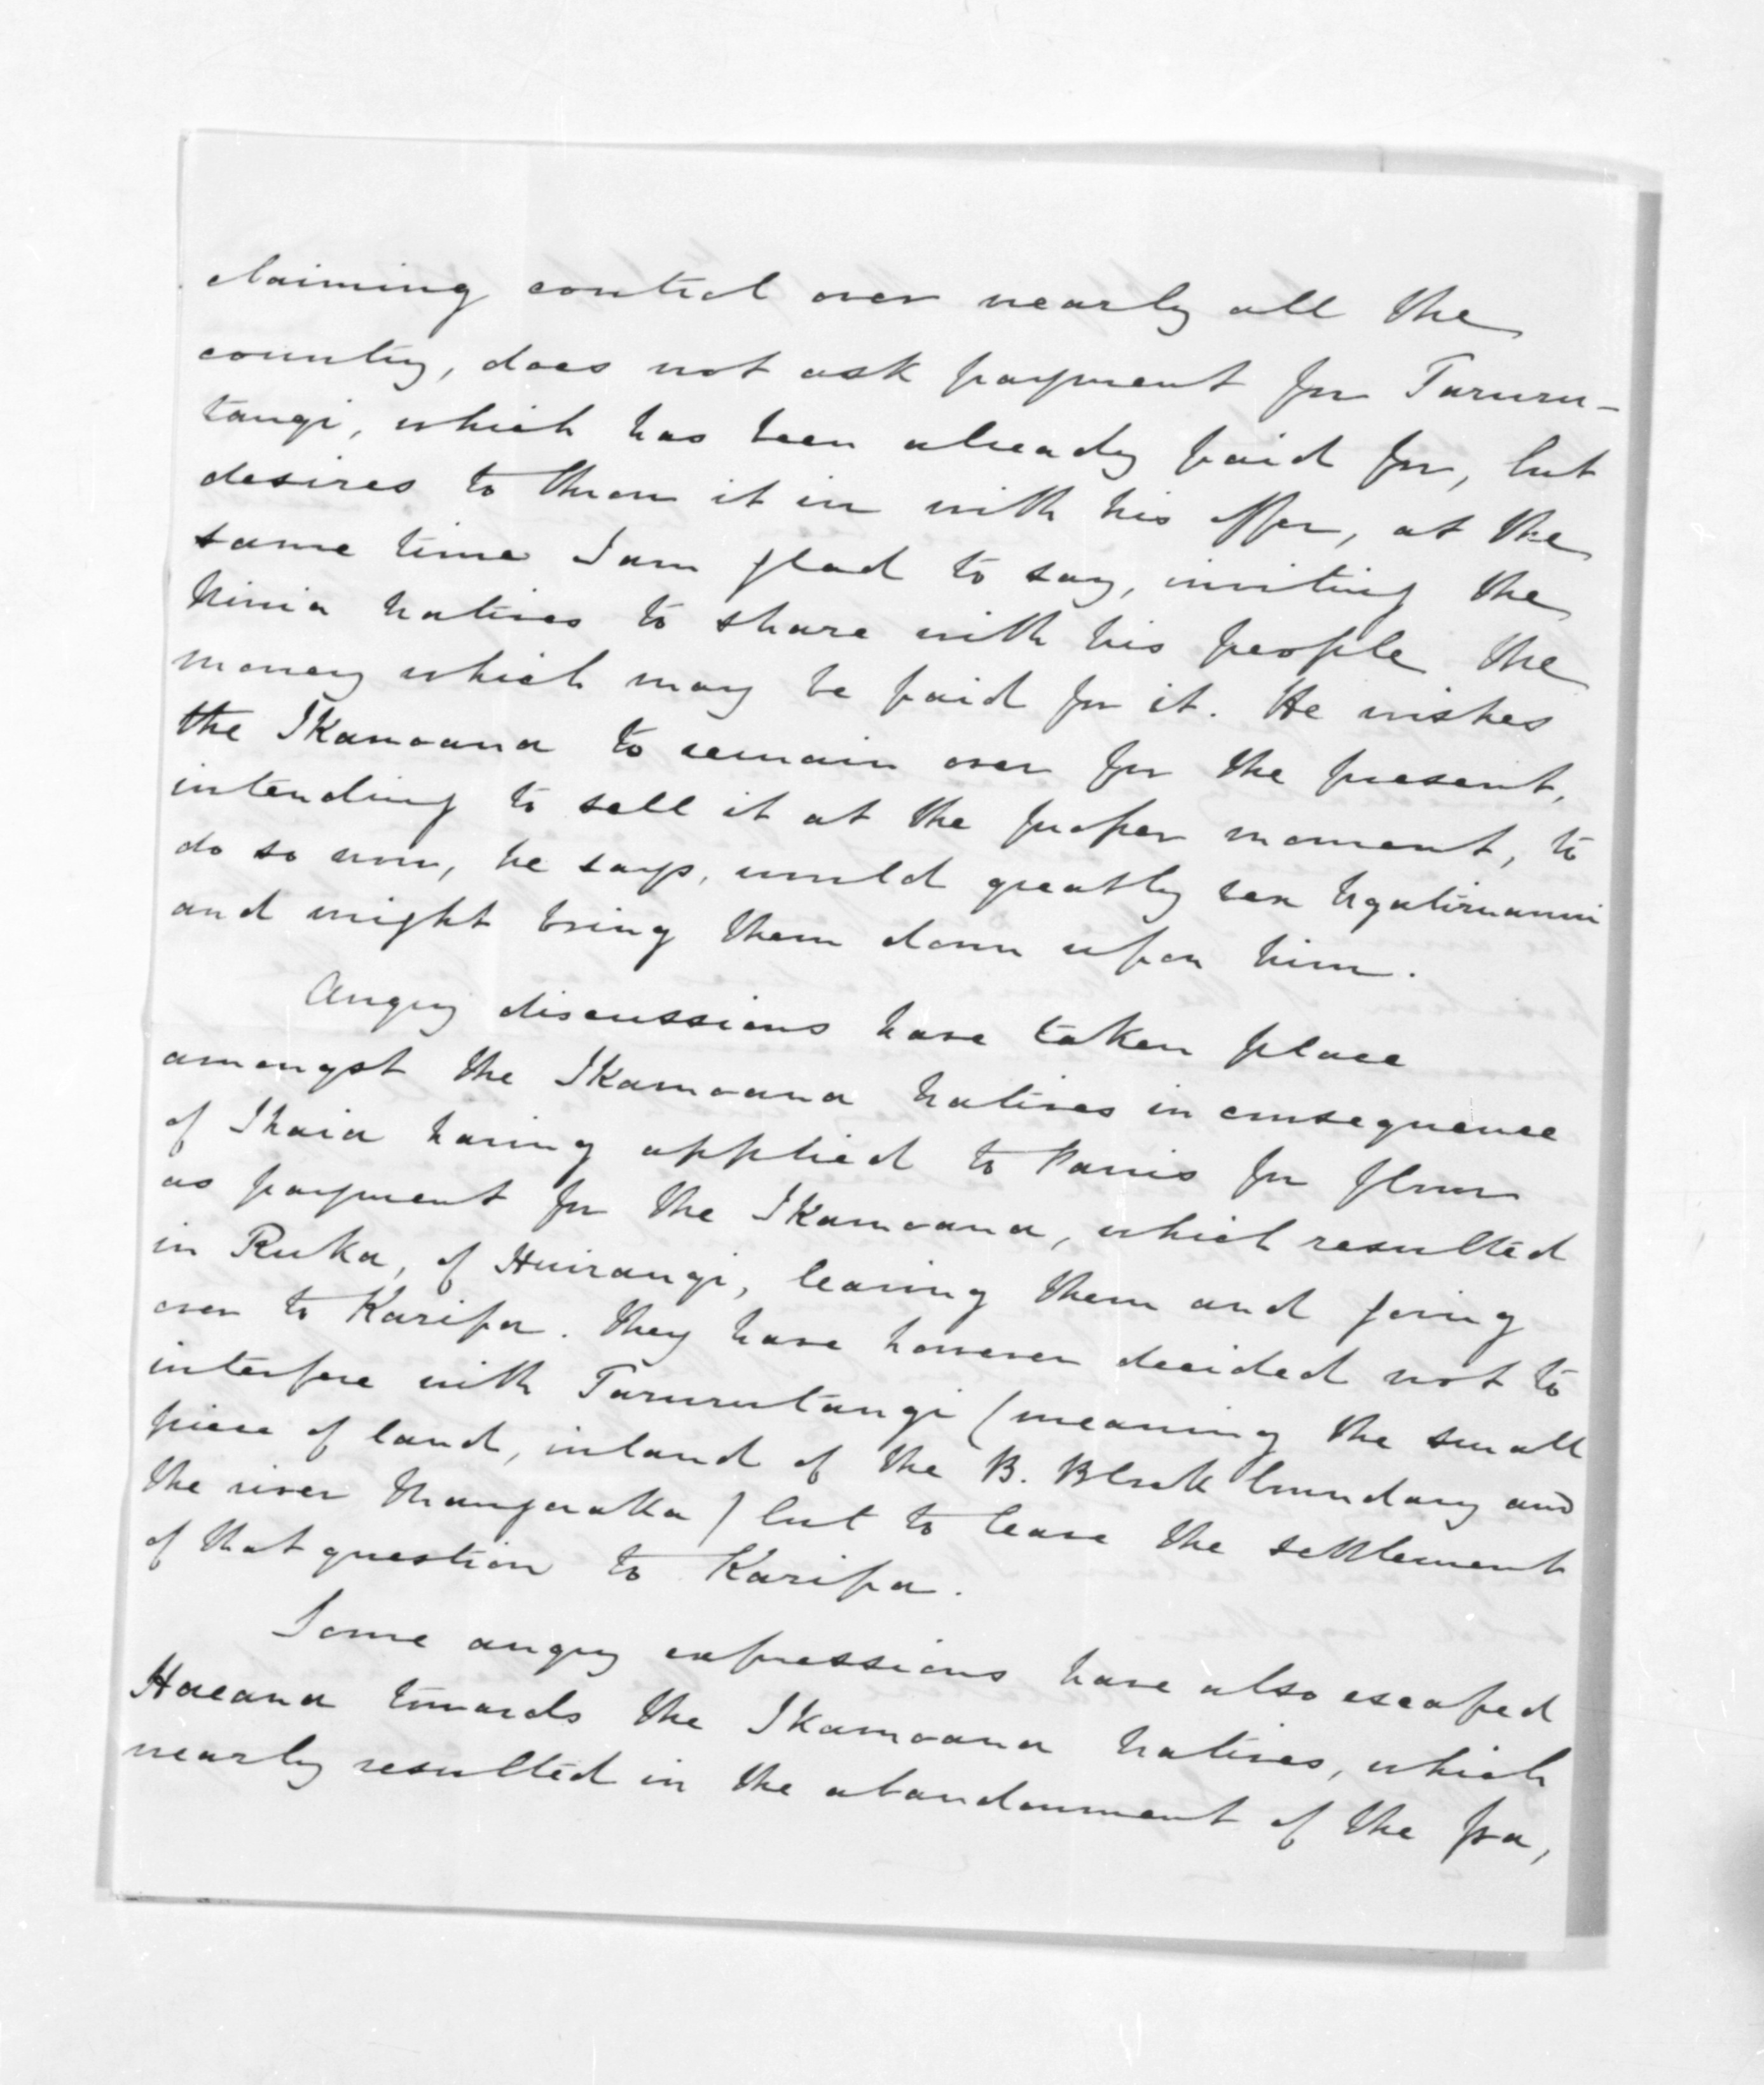 claiming control over nearly all the
country, does not ask payment for Taruru-
tangi, which has been already paid for, but
desires to throw it in with his offer, at the
same time I am glad to say, inviting the
Ninia Natives to share with his people the
money which may be paid for it. He wishes
the Ikamoana to remain over for the present,
intending to sell it at the proper moment, to
do so now, he says, would greatly vex Ngatiruanui
and might bring them down upon him.
Angry discussions have taken place
amongst the Ikamoana Natives in consequence
of Ihaia having applied to Parris for flour
as payment for the Ikamoana, which resulted
in Ruka, of Huirangi, leaving them and going
over to Karipa. They have however decided not to
interfere with Tarurutangi (meaning the small
piece of land, inland of the B. Block boundary and
the river Mangaraka) but to leave the settlement
of that question to Karipa.
Some angry expressions have also escaped
Hacana towards the Ikamoana Natives, which
nearly resulted in the abandonment of the pa,